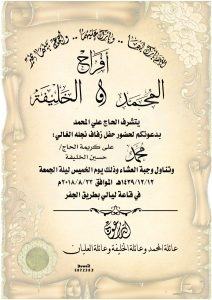 أفراح
المحمد و الخليفة
يتشرف الحاج علي المحمد
بدعوتكم لحضور حفل زفاف نجله الغالي:
محمد
على كريمة الحاج/
حسين الخليفة
وتناول وجبة العشاء وذلك يوم الخميس ليلة الجمعة
١٤٣٩/١٢/١٢هـ الموافق ٢٠١٨/٨/٢٣م
في قاعة ليالي بطريق الجفر
الداعون
عائلة المحمد وعائلة الخليفة وعائلة العلمان